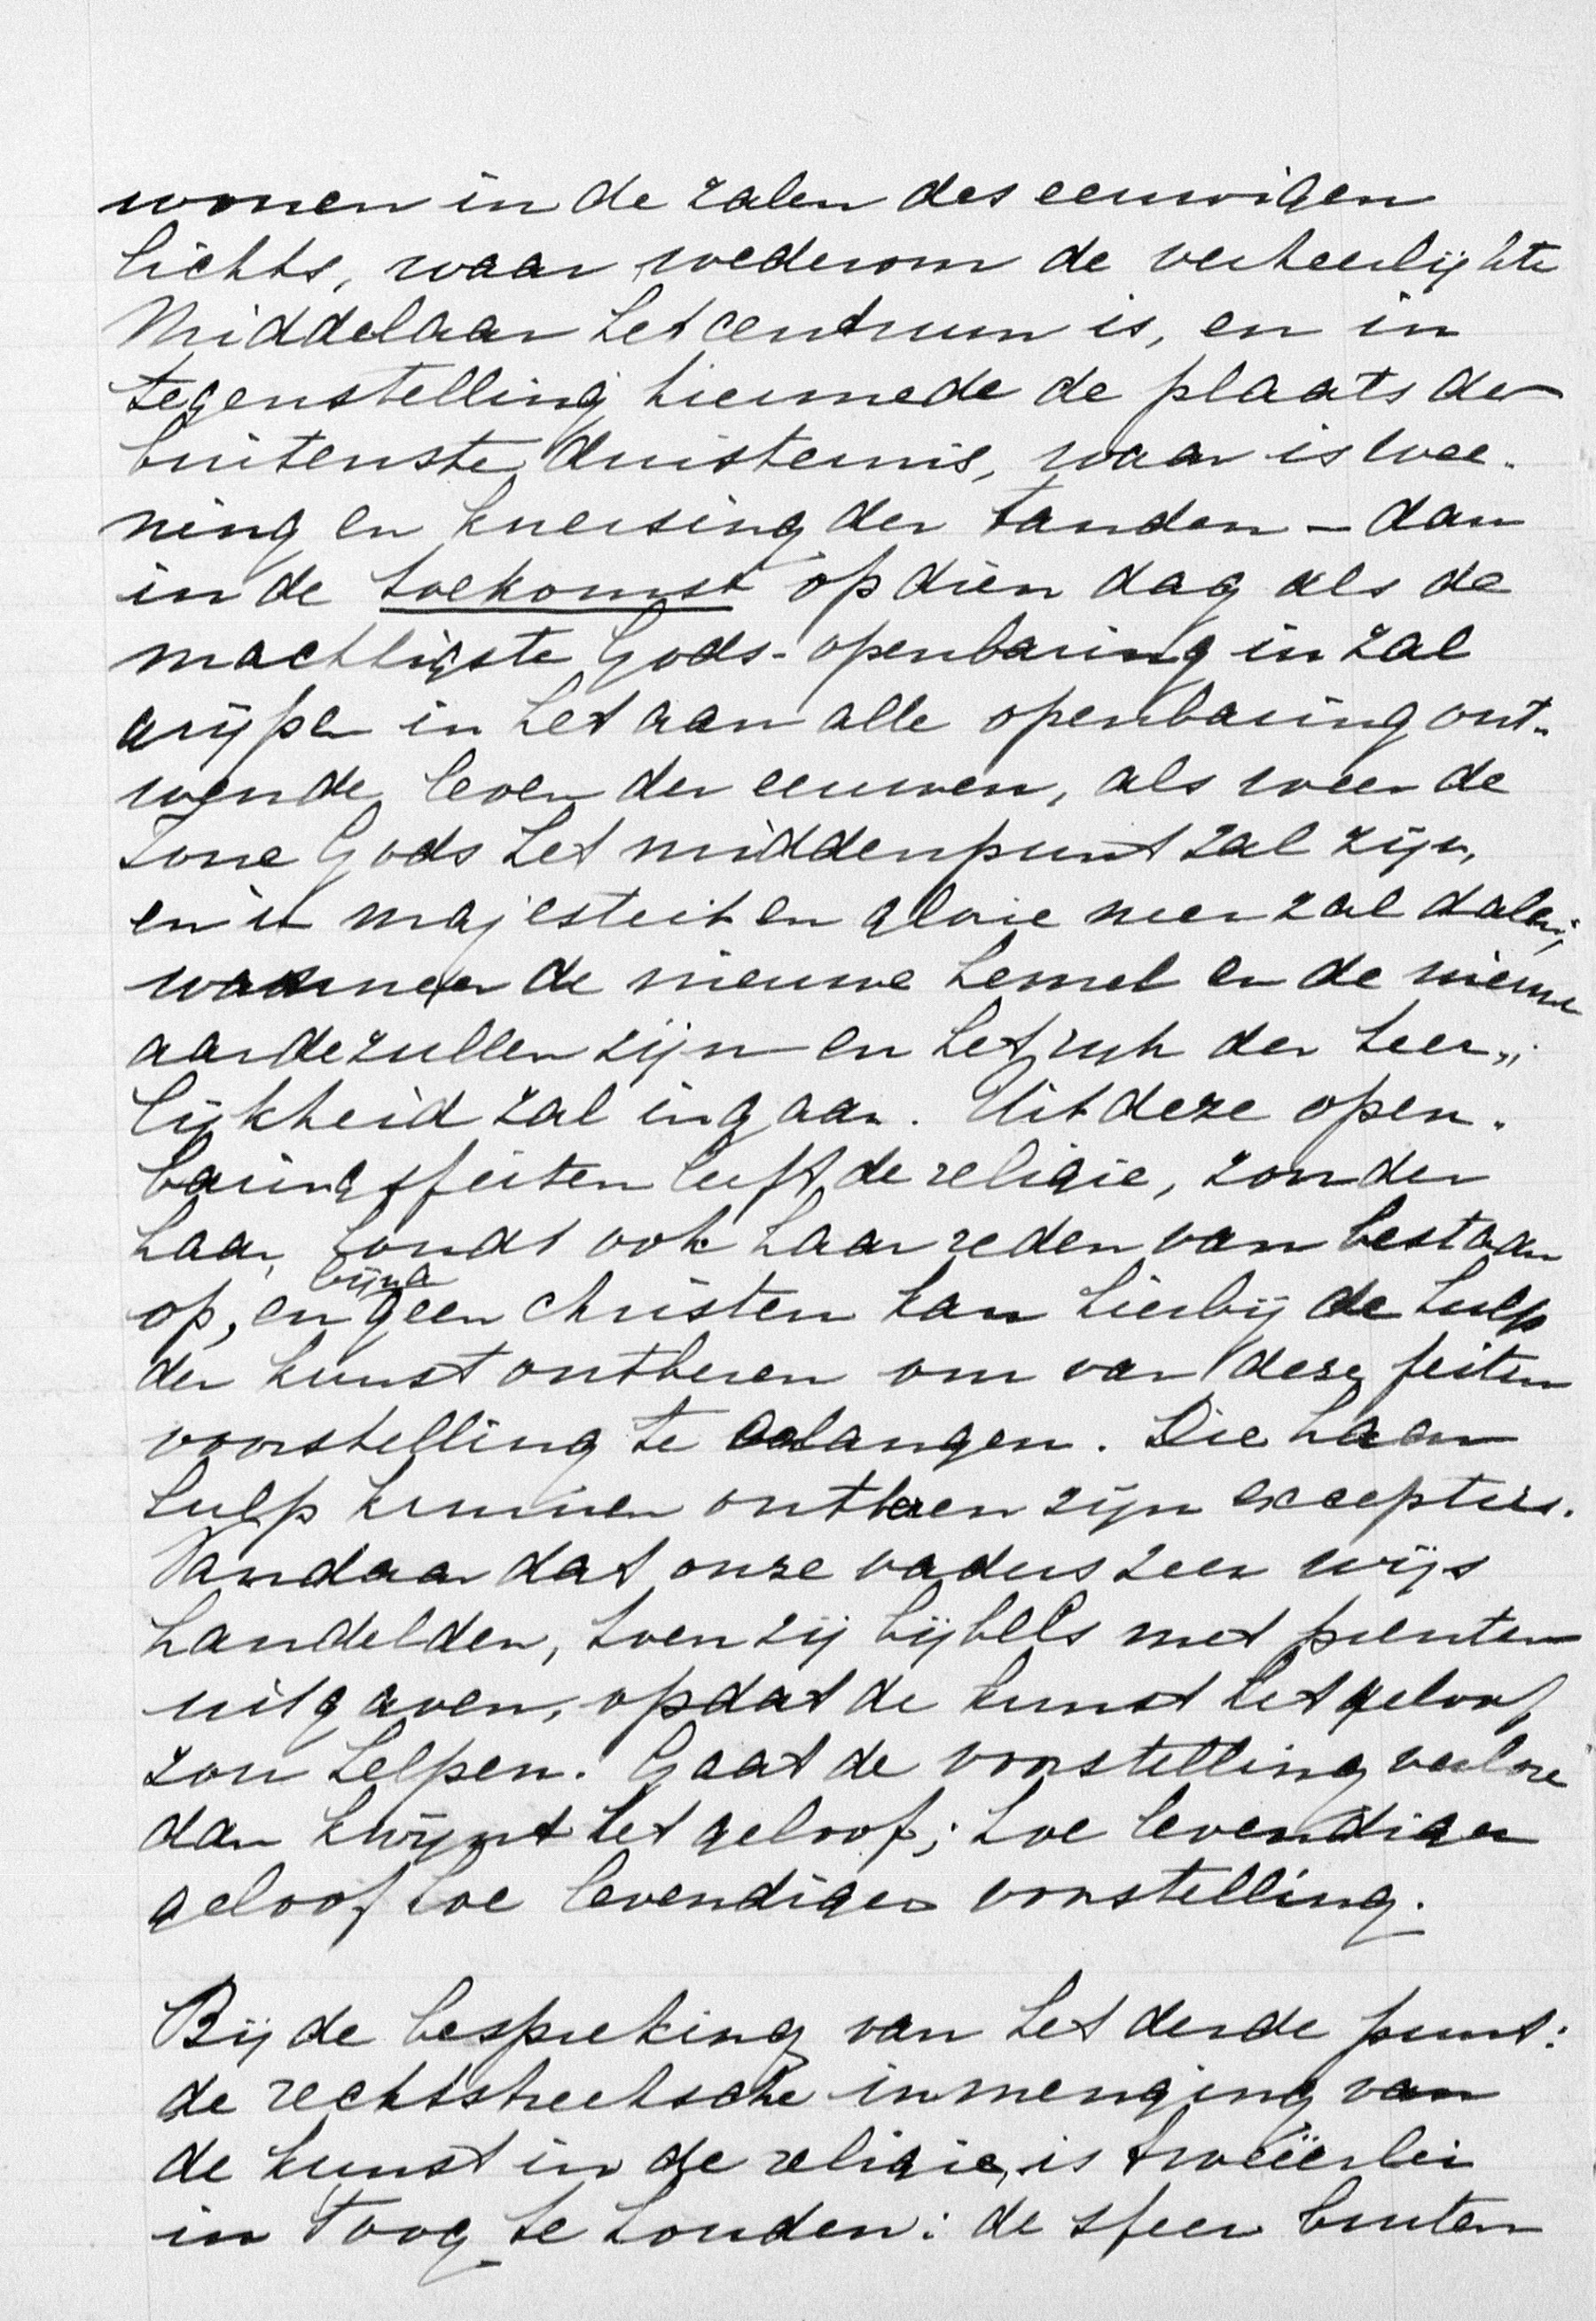 wonen in de zalen des eeuwigen
lichts, waar wederom de verheerlijkte
Middelaar het centrum is, en in
tegenstelling hiermede de plaats der
buitenste duisternis, waar is wee-
ning en knersing der tanden – dan
in de toekomst op dien dag als de
machtigste Gods-openbaring in zal
grijpen in het aan alle openbaring ont-
wende leven der eeuwen, als weer de
Zone Gods het middenpunt zal zijn,
en in majesteit en glorie neer zal dalen,
wanneer de nieuwe hemel en de nieuwe
aarde zullen zijn en het rijk der heer-
lijkheid zal ingaan. Uit deze open-
baringsfeiten leeft de religie, zonder
haar, houdt ook haar reden van bestaan
op, en bijna geen christen kan hierbij de hulp
der kunst ontberen om van deze feiten
voorstelling te erlangen. Die haar
hulp kunnen ontberen zijn excepties.
Vandaar dat onze vaders zeer wijs
handelden, toen zij bijbels met prenten
uitgaven, opdat de kunst het geloof
zou helpen. Gaat de voorstelling verlore
dan kwijnt het geloof; hoe levendiger
geloof hoe levendiger voorstelling.
Bij de bespreking van het derde punt:
de rechtstreeksche inmenging van
de kunst in de religie, is tweeërlei
in 't oog te houden: de sfeer buiten